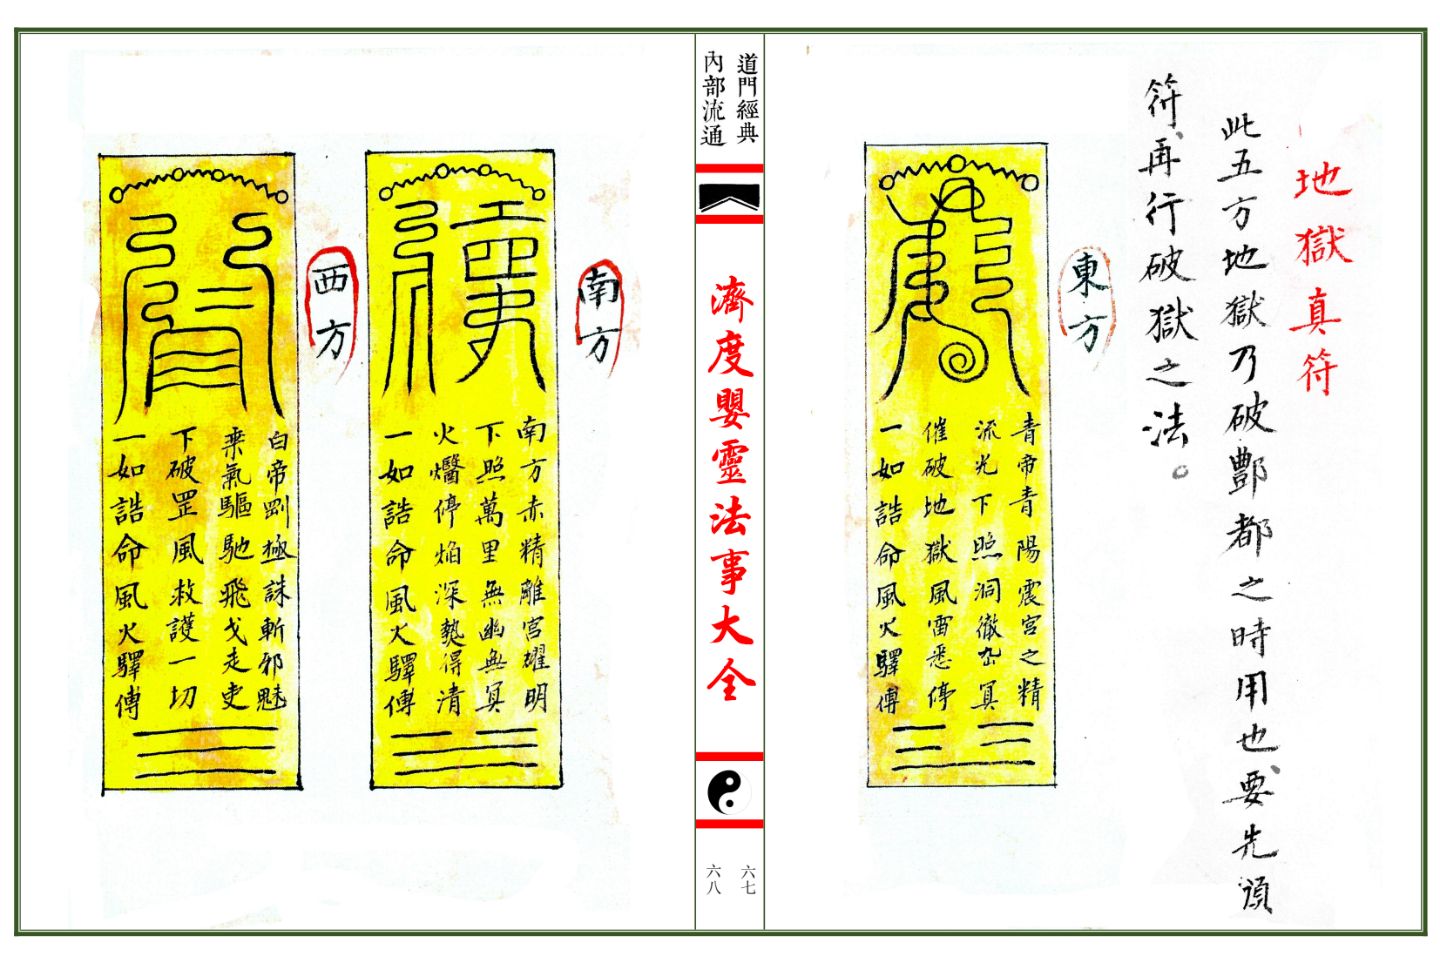 地獄真符
此五方地獄乃破酆都之時用也、要先頒
符、再行破獄之法。
東方
青帝青陽震宮之精
流光下照洞徹幽冥
催破地獄風雷悉停
一如誥命風火驛傳
道門經典
內部流通
濟度嬰靈法事大全
六七
六八
南方
南方赤精離宮耀明
下照萬里無幽無冥
火停焰深熱得清
一如誥命風火驛傳
西方
白帝剛極誅斬邪魅
乘氣驅馳飛戈走吏
下破罡風救護一切
一如誥命風火驛傳